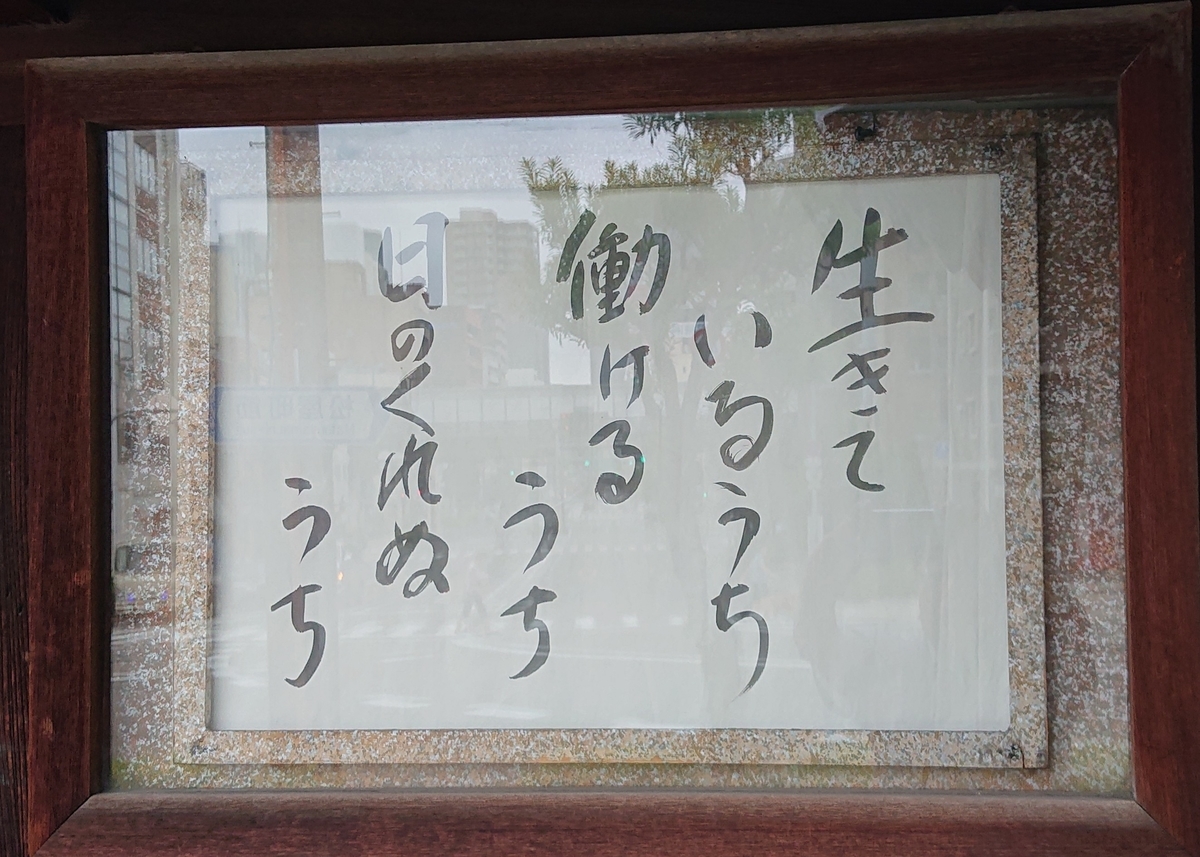 生きて
いるうち
働ける
うち
日のくれぬ
うち